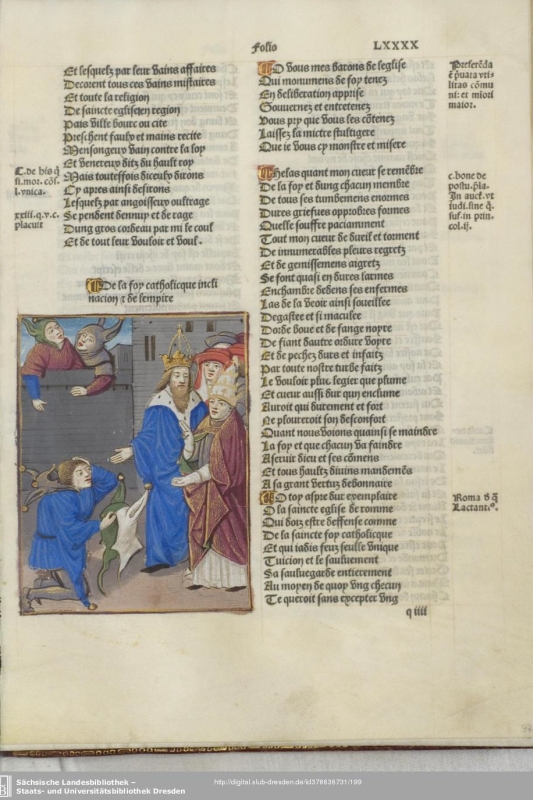 Folio LXXXX
Et lesquelz par leur vains affaires
Decoient tous ces vains mistaires
Et toute la religion
De saincte eglise en region
Pais ville bourc ou cite
Preschent faulx et mains recite
Mensongeux vain contre la loy
Et venereux ditz du hault roy
Mais toutesfois diceulx dirons
Cy apres ainsi desirons
Lesquelz par angoisseux oultrage
Se pendent dennuy et de rage
Dung gros cordeau par mi le coul
Et de tout leur vouloir et voul.
C. de his q
si. mot. cōs.
l. vnica.
xxiii. q. v. c.
placuit
De la foy catholicque incli
nacion ⁊ de lempire
O vous mes barons de leglise
Qui monumens de foy tenez
En deliberation apprise
Gouuernez et entretenez
Vous pry que vous les cōtenez
Laissez la
Que ie vous cy monstre et misere
Preferēda
ē puata vti-
litas cōmu
ni: et miori
maior.
Thelas quant mon cueur se remēbre
De la foy et dung chacun membre
De tous ses tumbemens enormes
Dures griefues opprobres formes
Quelle souffre paciamment
Tout mon cueur de dueil et torment
De innumerables pleurs regretz
Et de gemissemens aigretz
Se font quasi en dures larmes
Enchambre dedens ses enfermes
Las de la veoir ainsi souillee
Degastee et si maculee
Dorde boue et de fange noyre
De fiant dautre ordure voyre
Et de pechez durs et infaitz
Par toute nostre turbe faitz
Le vouloir plus legier que plume
Et cueur aussi dur qun enclume
Auroit qui durement et fort
Ne ploureroit son desconfort
Quant nous voions quainsi se maindre
La foy et que chacun va faindre
A seruir dieu et ses cōmens
Et tous haultz diuins mandemēs
A sa grant vertuz debonnaire
c. bone de
postu. p̄la.
In auct. vt
iudi. sine q̄.
suf. in prin.
col. ij.
O toy aspre dur exemplaire
O la saincte eglise de romme
Qui doiz estre deffense comme
De la saincte foy catholicque
Et qui iadis feuz seulle vnique
Tuicion et le sauluement
Sa sauluegarde entierement
Au moyen de quoy vng checun
Te queroit sans excepter vng
Roma v̄ q̄
Lactanti⁹.
q iiii
Sächsische Landesbibliothek –
Staats- und Universitätsbibliothek Dresden
http://digital.slub-dresden.de/id378636731/199